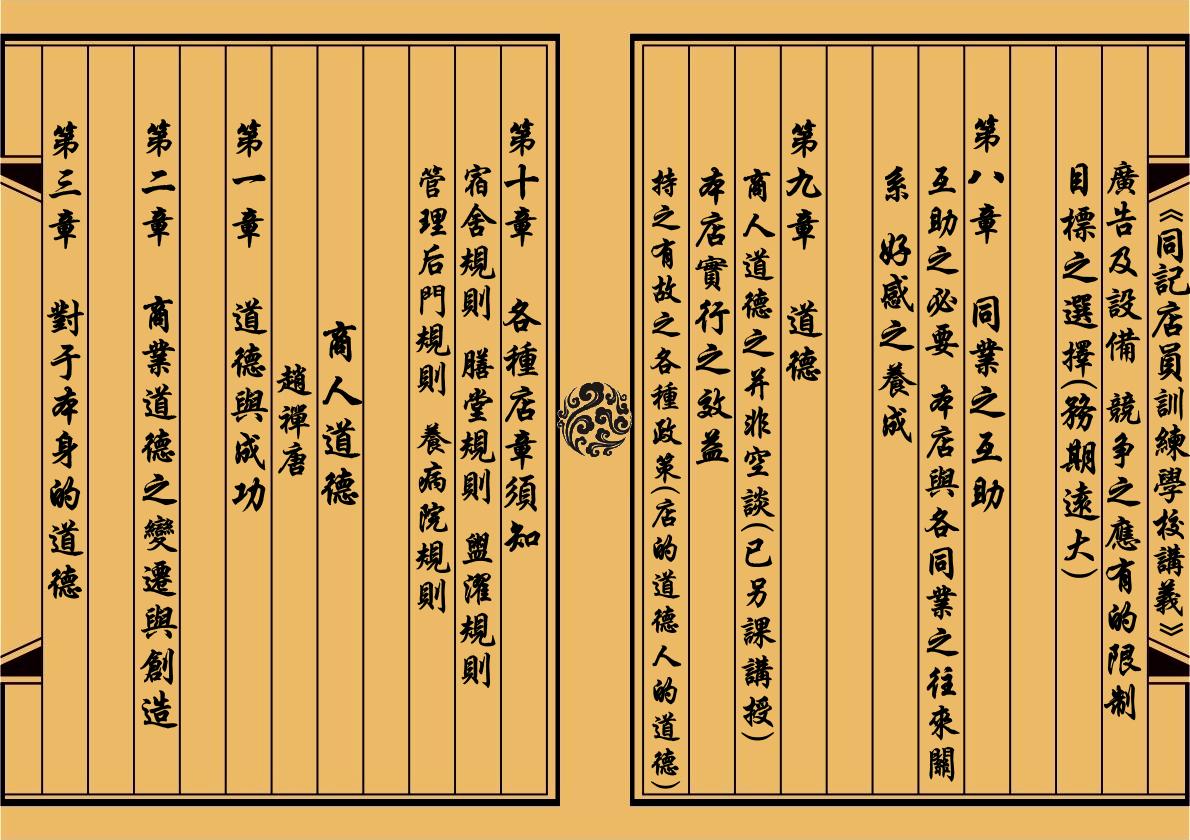 《同記店員訓練學校講義》
廣告及設備　競争之應有的限制
目標之選擇(務期遠大)
第八章　同業之互助
互助之必要　本店與各同業之往來關
系　好感之養成
第九章　道德
商人道德之并非空談(已另課講授)
本店實行之效益
持之有故之各種政策(店的道德人的道德)
第十章　各種店章須知
宿舍規則　膳堂規則　盥濯規則
管理后門規則　養病院規則
商人道德
趙禪唐
第一章　道德與成功
第二章　商業道德之變遷與創造
第三章　對于本身的道德